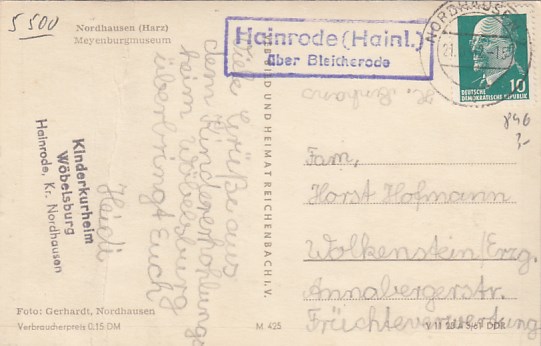 5500
Nordhausen (Harz)
Meyenburgmuseum
Hainrode (Hainl.)
über Bleicherode
NORDHAUSEN
DEUTSCHE
DEMOKRATISCHE REPUBLIK
10
846
3,-
Viele Grüße aus
dem Kindererholungs
heim Wöbelsburg
überbringt Euch
Heidi
Kinderkurheim
Wöbelsburg
Hainrode, Kr. Nordhausen
BILD UND HEIMAT REICHENBACH I. V.
Fam.
Horst Hofmann
Wolkenstein/Erzg.
Annabergerstr.
Früchteverwertung
Foto: Gerhardt, Nordhausen
Verbraucherpreis 0,15 DM
M 425
DDR